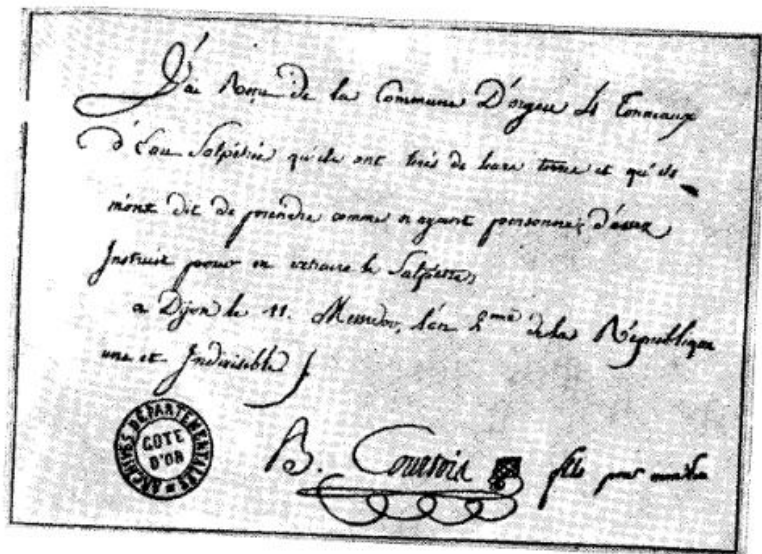 J'ai Reçu de la Commune D'orgeu 4 Tonneaux
d'Eau Salpétrée qu'ils ont tirés de leurs terres et qu'ils
m'ont dit de prendre comme n'ayant personnes d'assez
Instruit pour en extraire le Salpêtre,
a Dijon le 11. Messidor, l'an 2me de la République
une et Indivisible
B. Courtois fils pour
ARCHIVES DÉPARTEMENTALES
COTE
D'OR